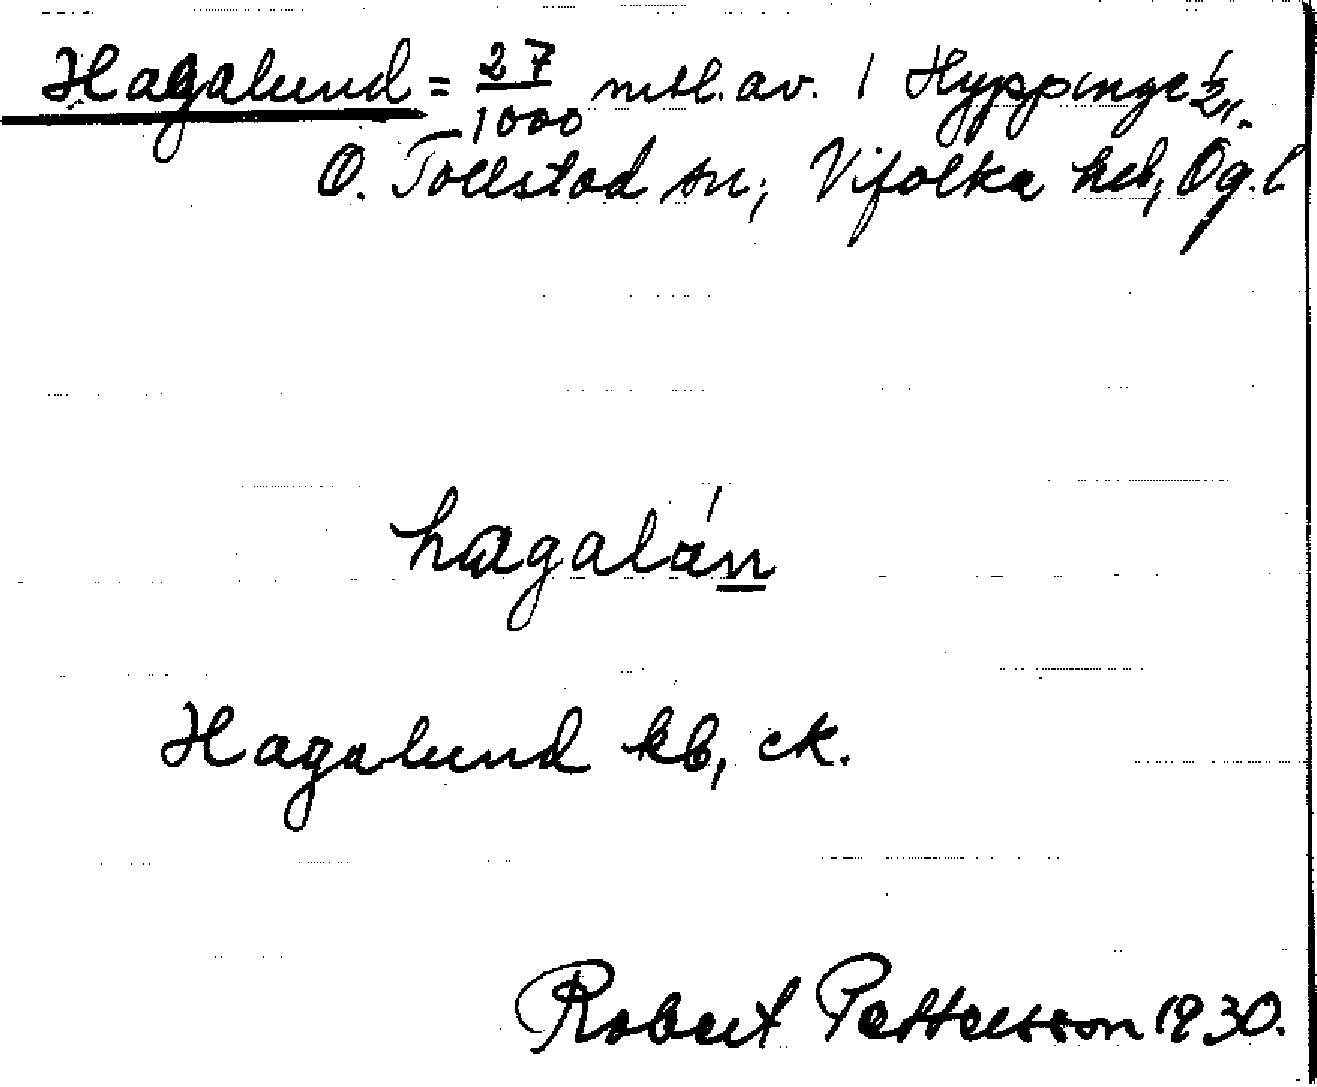 Hagalund = 27/1000 mtl. av. 1 Hyppinge 1/2,,.
Ö. Tollstad sn, Vifolka hd, Ög. l
hagalán
Hagalund kb, ek.
Robert Pettersson 1930.